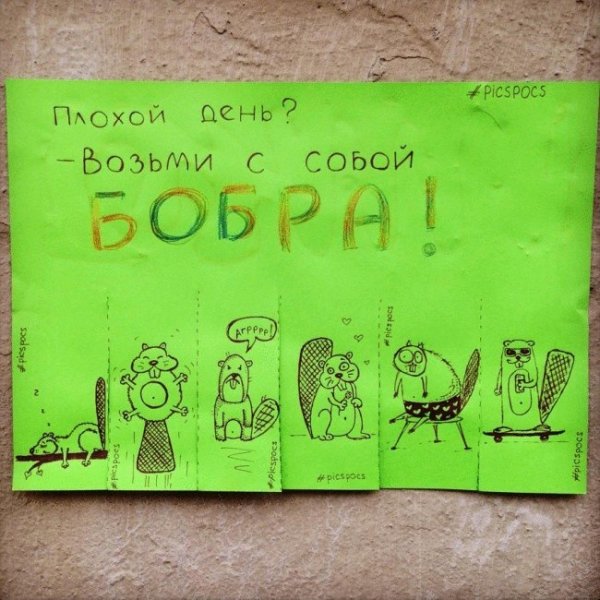 #PICSPOCS
Плохой день?
-Возьми с собой
БОБРА!
#picspocs
#picspocs
Arpppp!
#picspocs
#picspocs
#picspocs
#picspocs